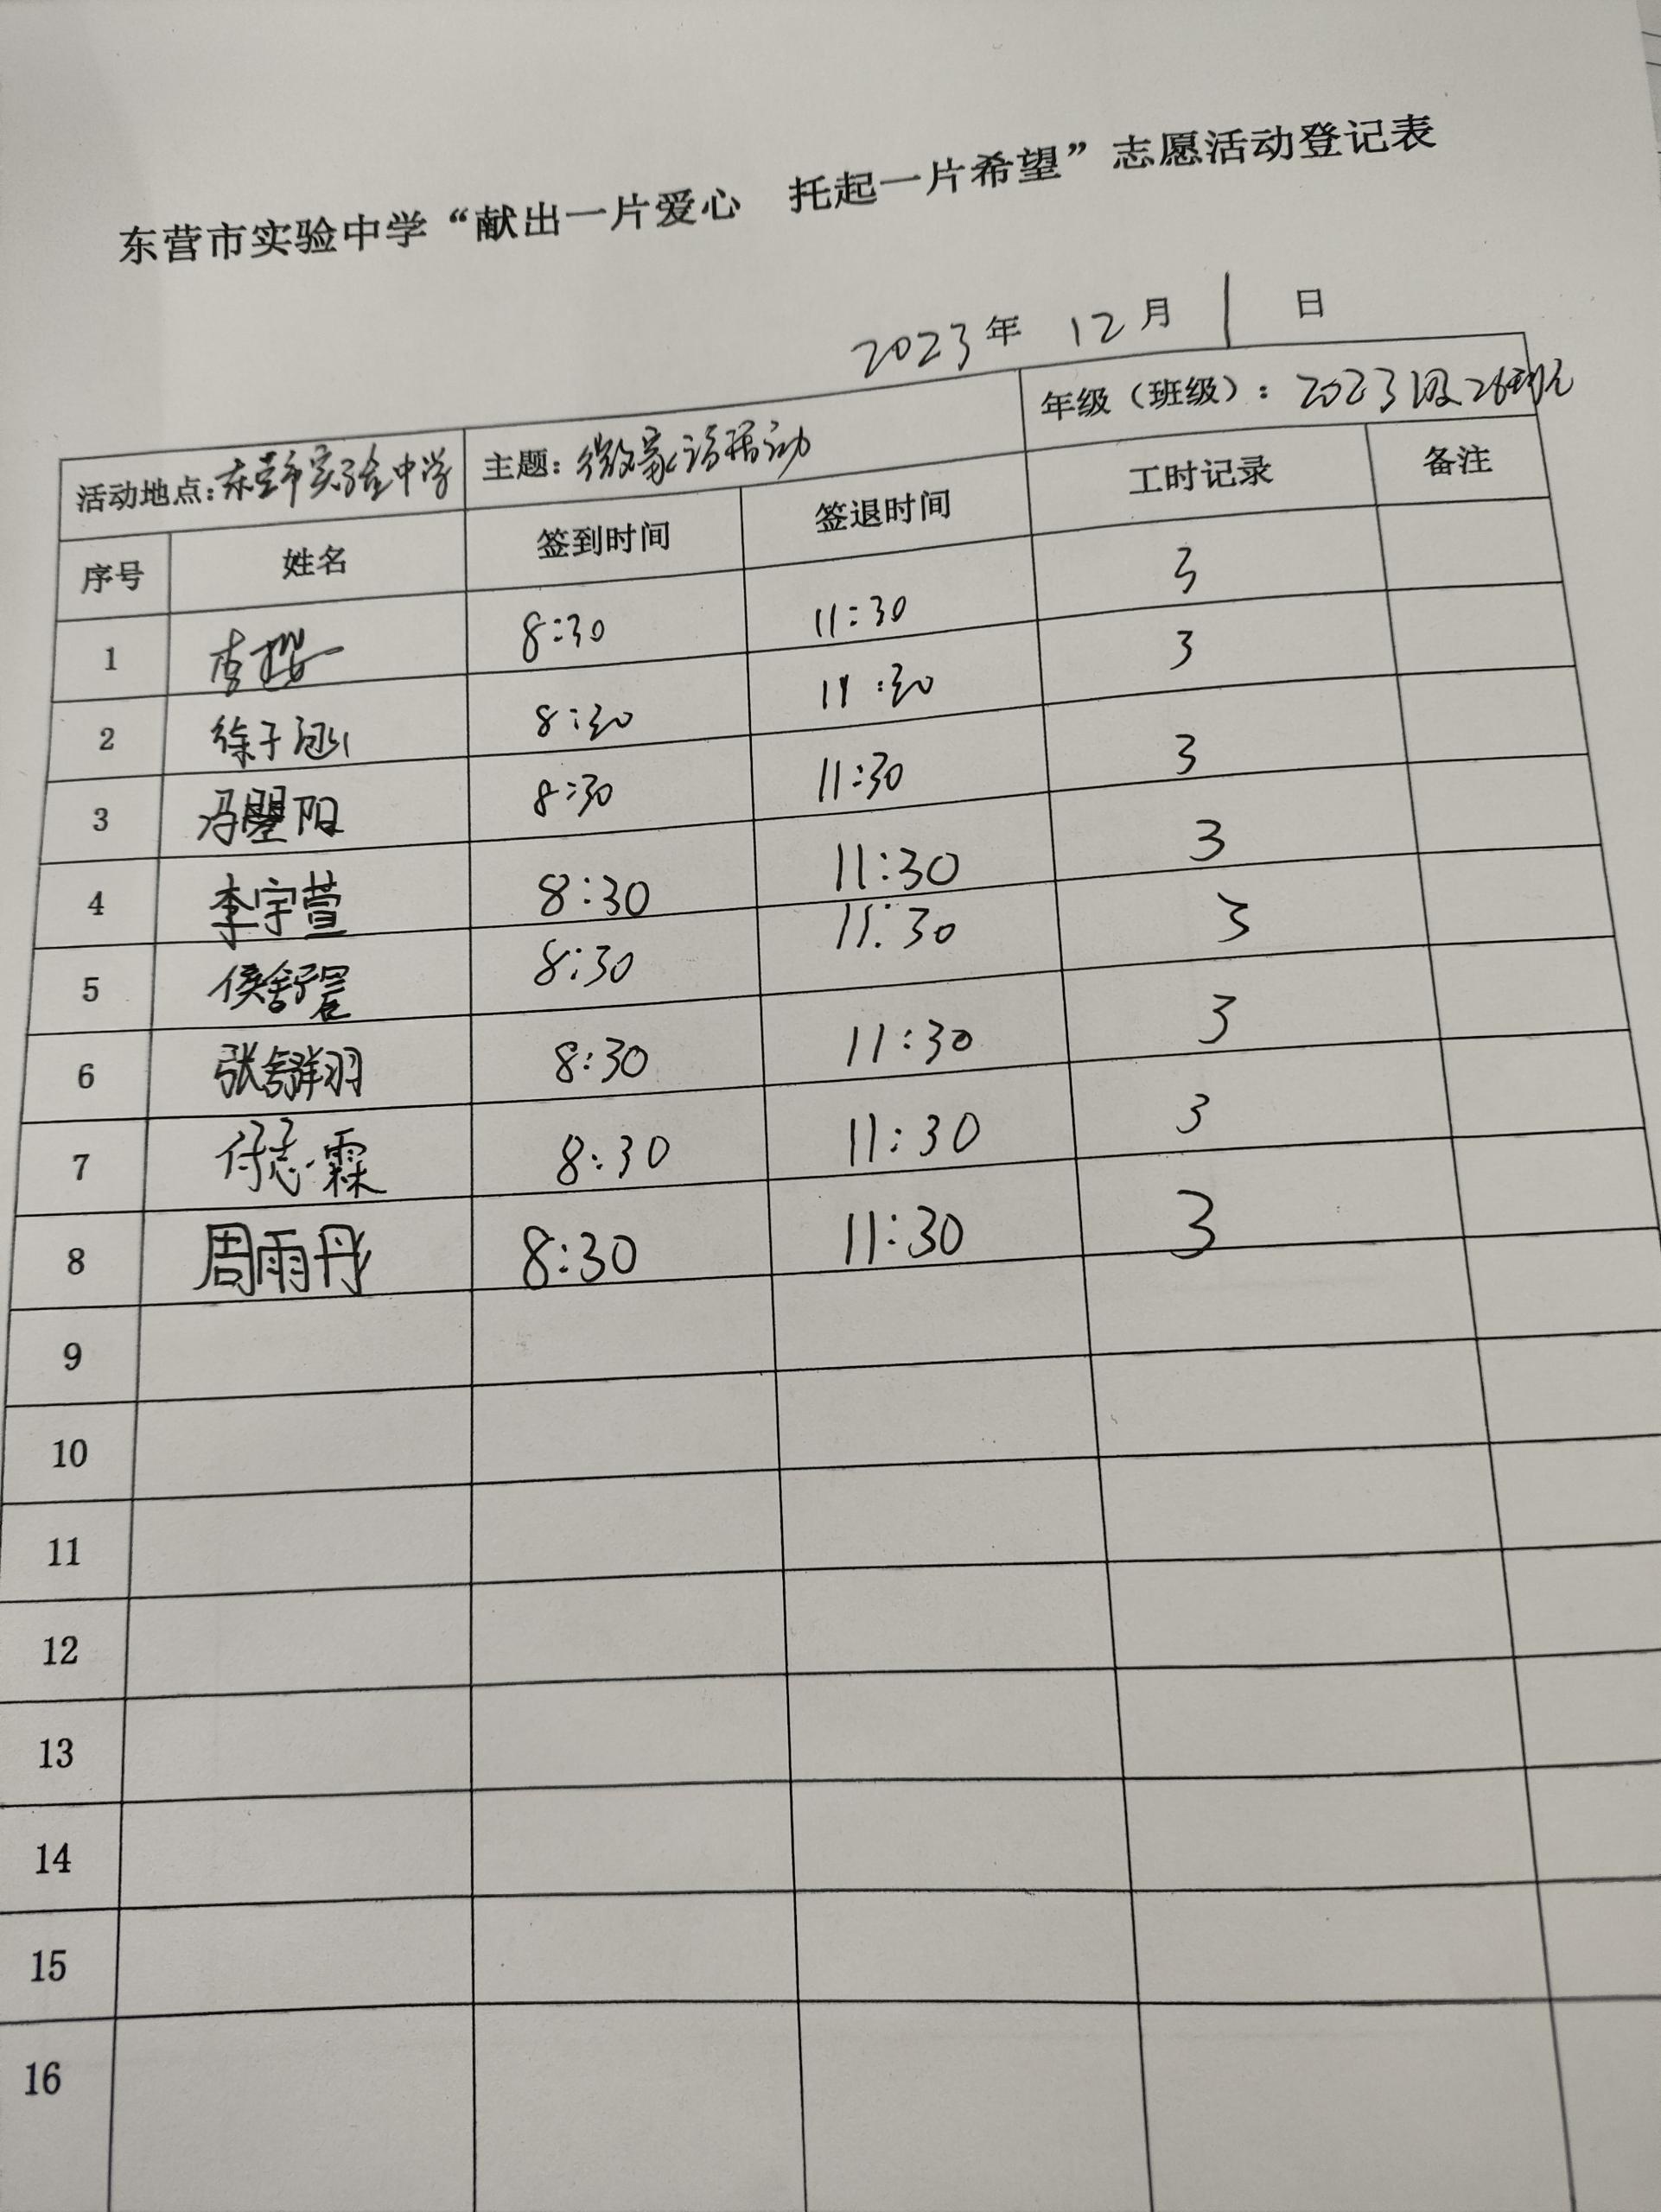 东营市实验中学“献出一片爱心 托起一片希望”志愿活动登记表
2023年 12月 1 日
活动地点：东营市实验中学 主题：微家访活动 年级（班级）：2023级26
序号 姓名 签到时间 签退时间 工时记录 备注
1 李 8:30 11:30 3
2 徐子涵 8:30 11:30 3
3 冯 阳 8:30 11:30 3
4 李宇萱 8:30 11:30 3
5 侯舒 8:30 11:30 3
6 张 羽 8:30 11:30 3
7 付志霖 8:30 11:30 3
8 周雨彤 8:30 11:30 3
9
10
11
12
13
14
15
16